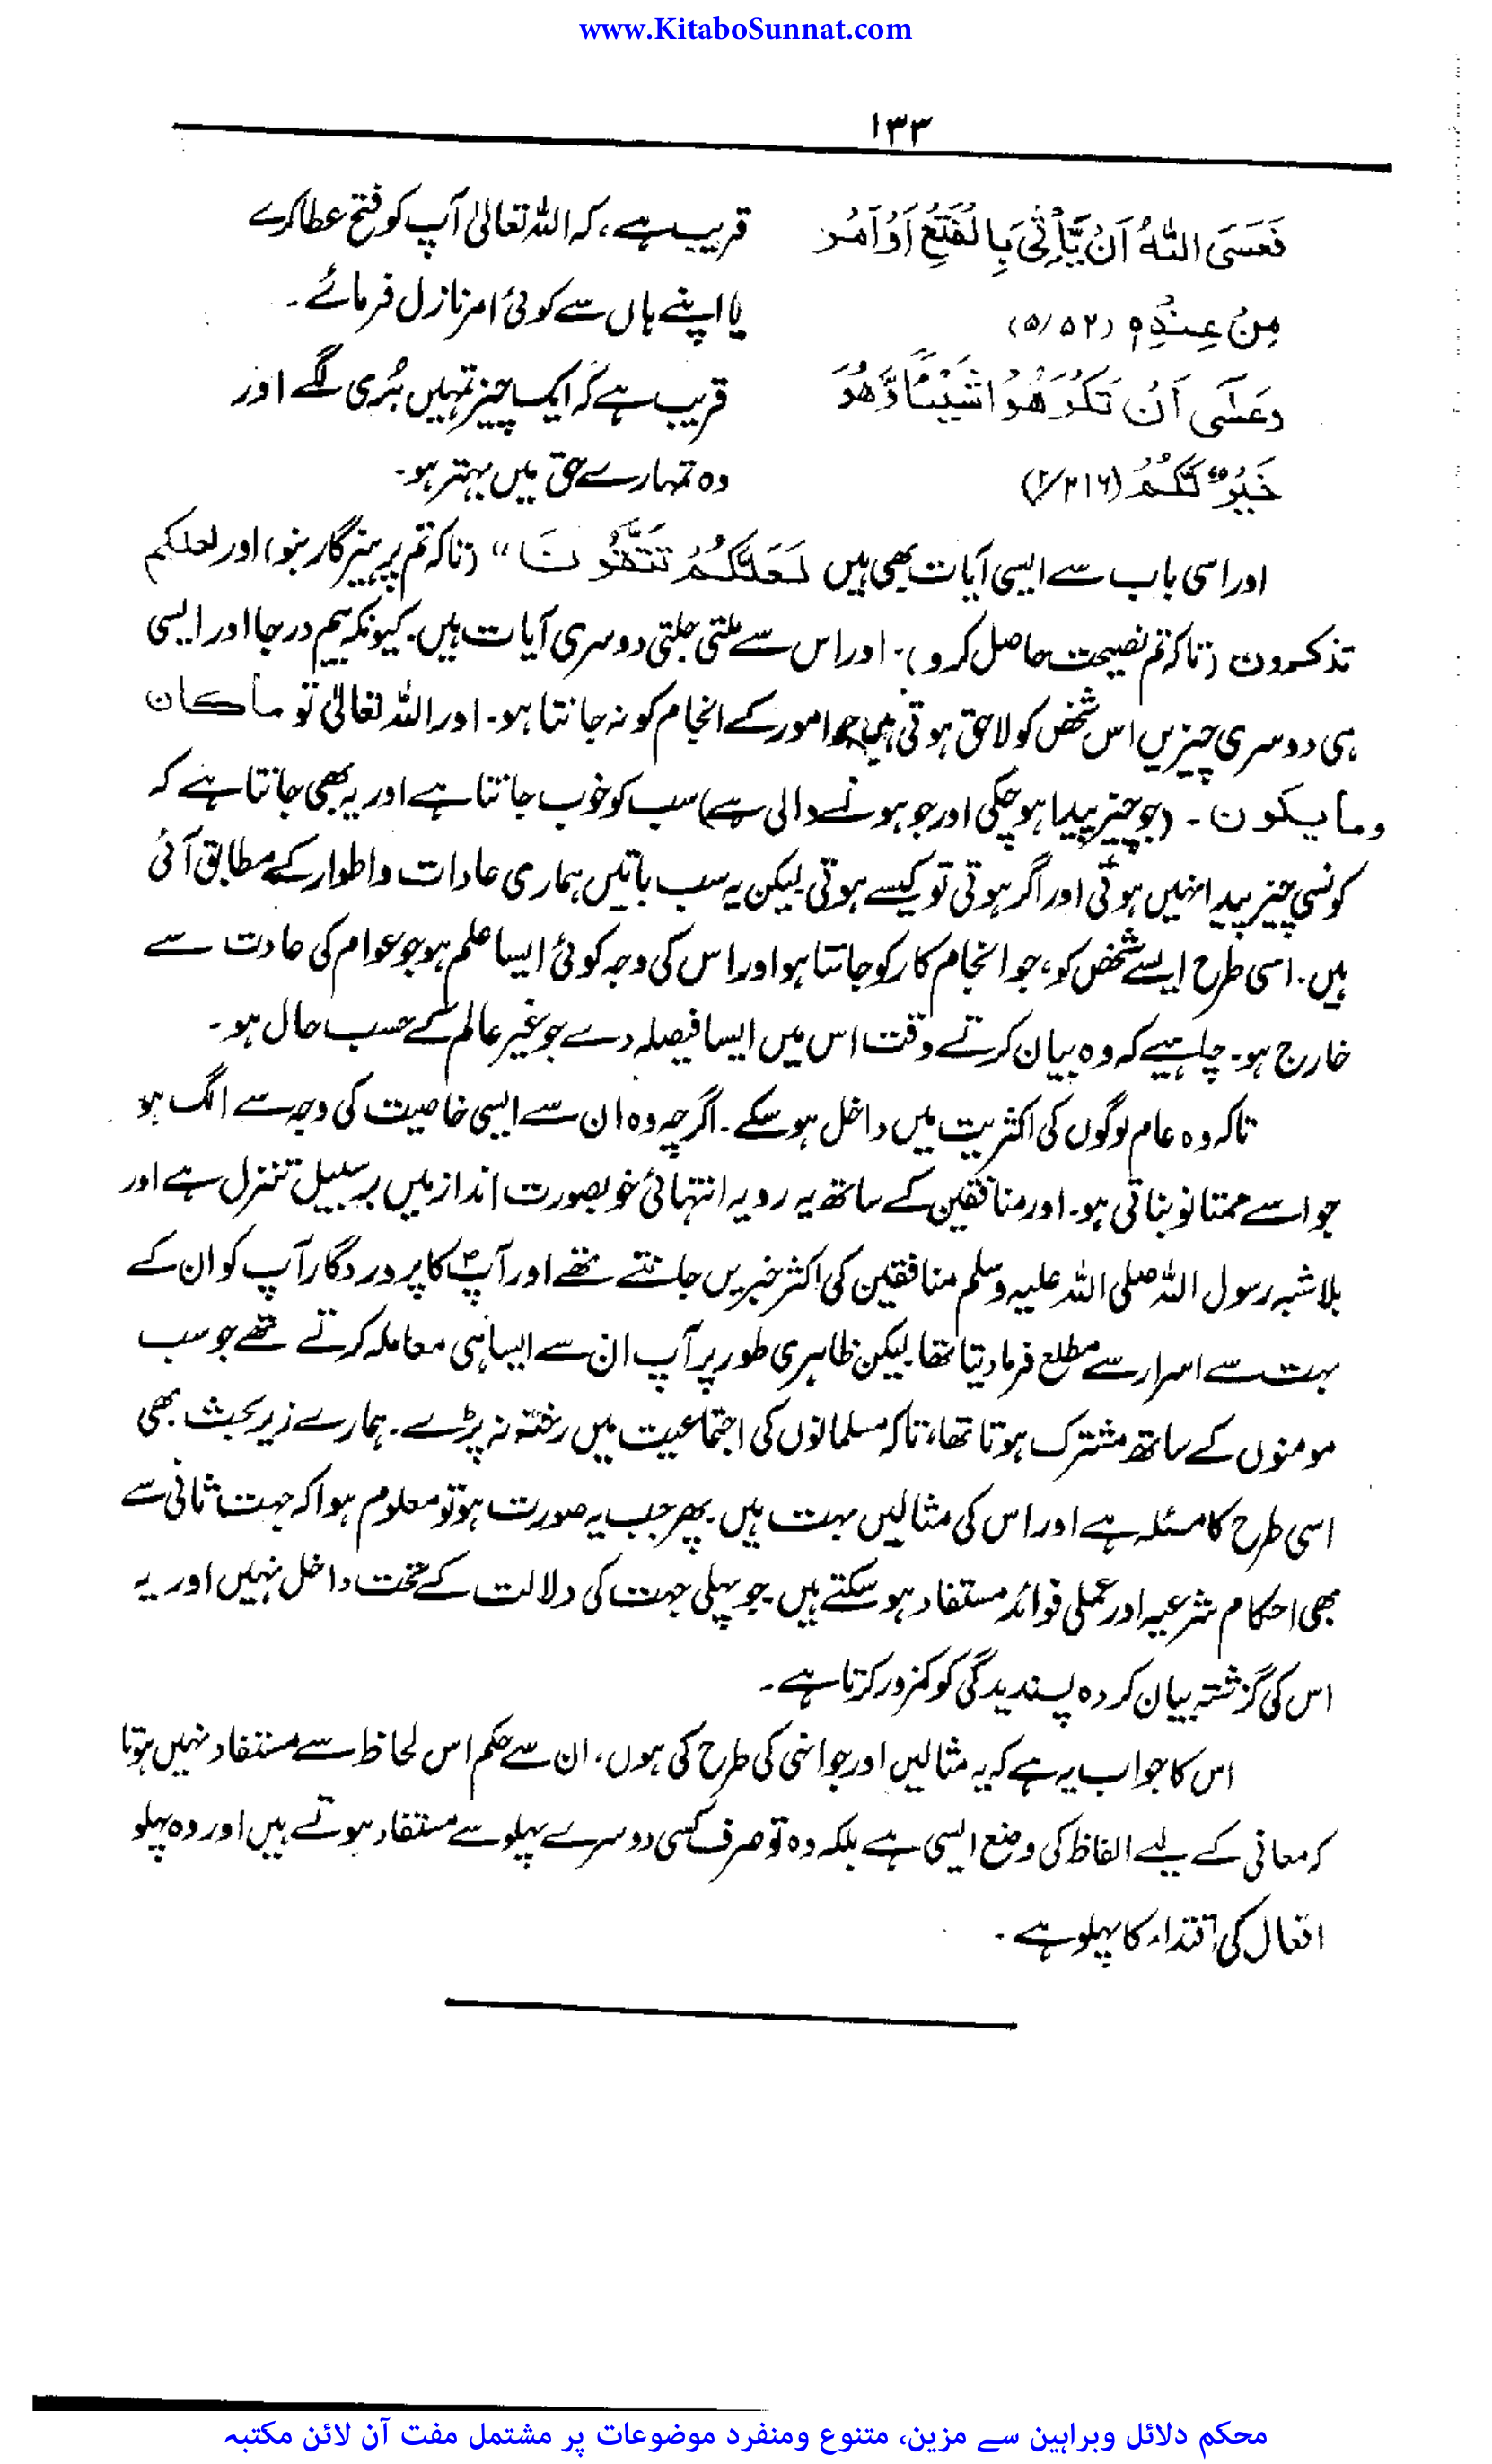 www.KitaboSunnat.com
۱۳۳
فَعَسَى اللّٰهُ اَنْ يَّأْتِيَ بِالْفَتْحِ اَوْ اَمْرٍ قریب ہے، کہ اللہ تعالیٰ آپ کو فتح عطا کرے
مِنْ عِنْدِهٖ (۵/۵۲) یا اپنے ہاں سے کوئی امر نازل فرمائے۔
وَعَسٰٓى اَنْ تَكْرَهُوْا شَيْـًٔا وَّهُوَ قریب ہے کہ ایک چیز تمہیں بُری لگے اور
خَيْرٌ لَّكُمْ (۲/۲۱۶) وہ تمہارے حق میں بہتر ہو۔
اور اسی باب سے ایسی آیات بھی ہیں لَعَلَّكُمْ تَتَّقُوْنَ“ (تاکہ تم پرہیزگار بنو) اور لعلکم
تذکرون (تاکہ تم نصیحت حاصل کرو)۔ اور اس سے ملتی جلتی دوسری آیات ہیں۔ کیونکہ بیم و رجا اور ایسی
ہی دوسری چیزیں اس شخص کو لاحق ہوتی ہیں جو امور کے انجام کو نہ جانتا ہو۔ اور اللہ تعالیٰ تو ماکان
ومایکون۔ (جو چیز پیدا ہو چکی اور جو ہونے والی ہے) سب کو خوب جانتا ہے اور یہ بھی جانتا ہے کہ
کونسی چیز پیدا نہیں ہوئی اور اگر ہوتی تو کیسے ہوتی۔ لیکن یہ سب باتیں ہماری عادات واطوار کے مطابق آئی
ہیں۔ اسی طرح ایسے شخص کو، جو انجام کار کو جانتا ہو اور اس کی وجہ کوئی ایسا علم ہو جو عوام کی عادت سے
خارج ہو۔ چاہیے کہ وہ بیان کرتے وقت اس میں ایسا فیصلہ دے جو غیر عالم کے حسب حال ہو۔
تاکہ وہ عام لوگوں کی اکثریت میں داخل ہو سکے۔ اگرچہ وہ ان سے ایسی خاصیت کی وجہ سے الگ ہو
جو اسے ممتاز بناتی ہو۔ اور منافقین کے ساتھ یہ رویہ انتہائی خوبصورت انداز میں بر سبیل تنزل ہے اور
بلاشبہ رسول اللہ صلی اللہ علیہ وسلم منافقین کی اکثر خبریں جانتے تھے اور آپؐ کا پروردگار آپ کو ان کے
بہت سے اسرار سے مطلع فرما دیتا تھا۔ لیکن ظاہری طور پر آپ ان سے ایسا ہی معاملہ کرتے تھے جو سب
مومنوں کے ساتھ مشترک ہوتا تھا، تاکہ مسلمانوں کی اجتماعیت میں رخنہ نہ پڑے۔ ہمارے زیر بحث بھی
اسی طرح کا مسئلہ ہے اور اس کی مثالیں بہت ہیں۔ پھر جب یہ صورت ہو تو معلوم ہوا کہ جہت ثانی سے
بھی احکام شرعیہ اور عملی فوائد مستفاد ہو سکتے ہیں۔ جو پہلی جہت کی دلالت کے تحت داخل نہیں اور یہ
اس کی گزشتہ بیان کردہ پسندیدگی کو کمزور کرتا ہے۔
اس کا جواب یہ ہے کہ یہ مثالیں اور جو انہی کی طرح کی ہوں، ان سے حکم اس لحاظ سے مستفاد نہیں ہوتا
کہ معانی کے لیے الفاظ کی وضع ایسی ہے بلکہ وہ تو صرف کسی دوسرے پہلو سے مستفاد ہوتے ہیں اور وہ پہلو
افعال کی اقتداء کا پہلو ہے۔
محکم دلائل وبراہین سے مزین، متنوع ومنفرد موضوعات پر مشتمل مفت آن لائن مکتبہ